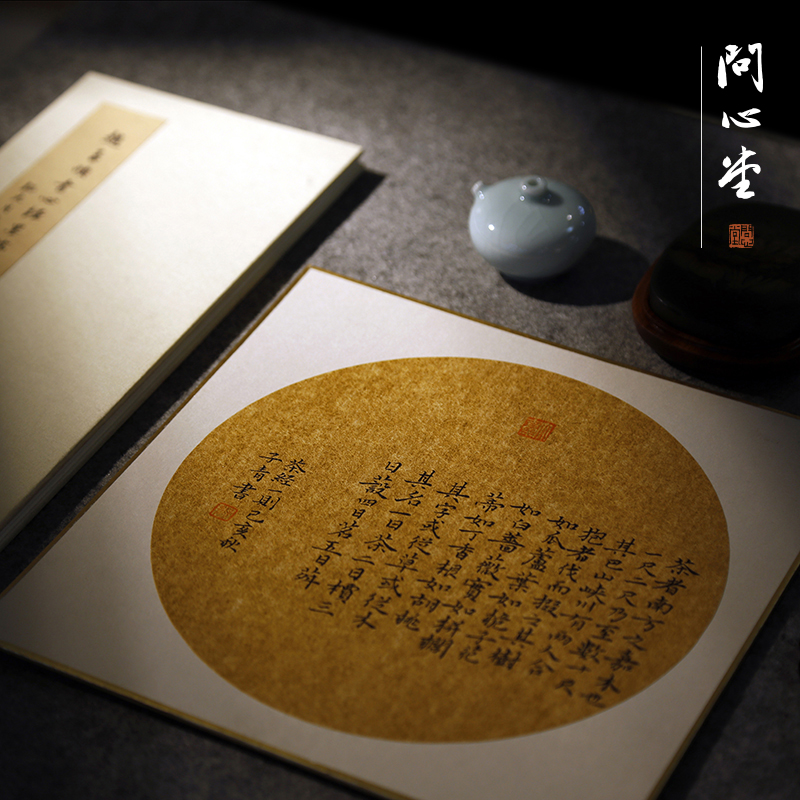 問心堂
茶者南方之嘉木也
一尺二尺乃至數十尺
其巴山峽川有兩人合
抱者伐而掇之其樹
如瓜蘆葉如梔子花
如白薔薇實如栟櫚
蒂如丁香根如胡桃
其字或從草或從木
其名一曰茶二曰檟三
曰蔎四曰茗五曰荈
茶經一則己亥秋
子青書